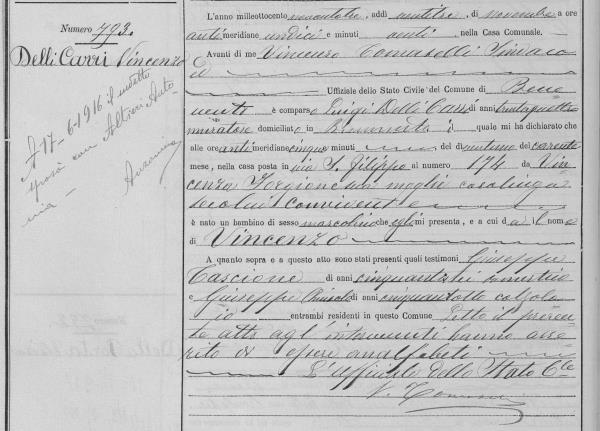 Numero 793.
Delli Carri Vincenzo
17-6-1916 il
sposò con Altieri Anto-
nia
L'anno milleottocento novantatre, addì ventitre, di novembre a ore
anti meridiane undici e minuti venti, nella Casa Comunale.
Avanti di me Vincenzo Tomaselli Sindaco
ed
Uffiziale dello Stato Civile del Comune di Bene
vento è comparso Luigi Delli Carri di anni trentaquattro
muratore domiciliato in Benevento il quale mi ha dichiarato che
alle ore anti meridiane cinque e minuti del ventuno del corrente
mese, nella casa posta in via S. Filippo al numero 174 da Vin
cenza Forgione sua moglie casalinga
seco lui convivente
è nato un bambino di sesso mascolino che egli mi presenta, e a cui dà il nome
di Vincenzo
A quanto sopra e a questo atto sono stati presenti quali testimoni Giuseppe
Tascione di anni
e Giuseppe di anni cinquantotto calzola
io entrambi residenti in questo Comune Letto il presen
te atto agl'intervenuti hanno asse
rito di essere analfabeti
L'Uffiziale dello Stato Cle
V. Tomaselli